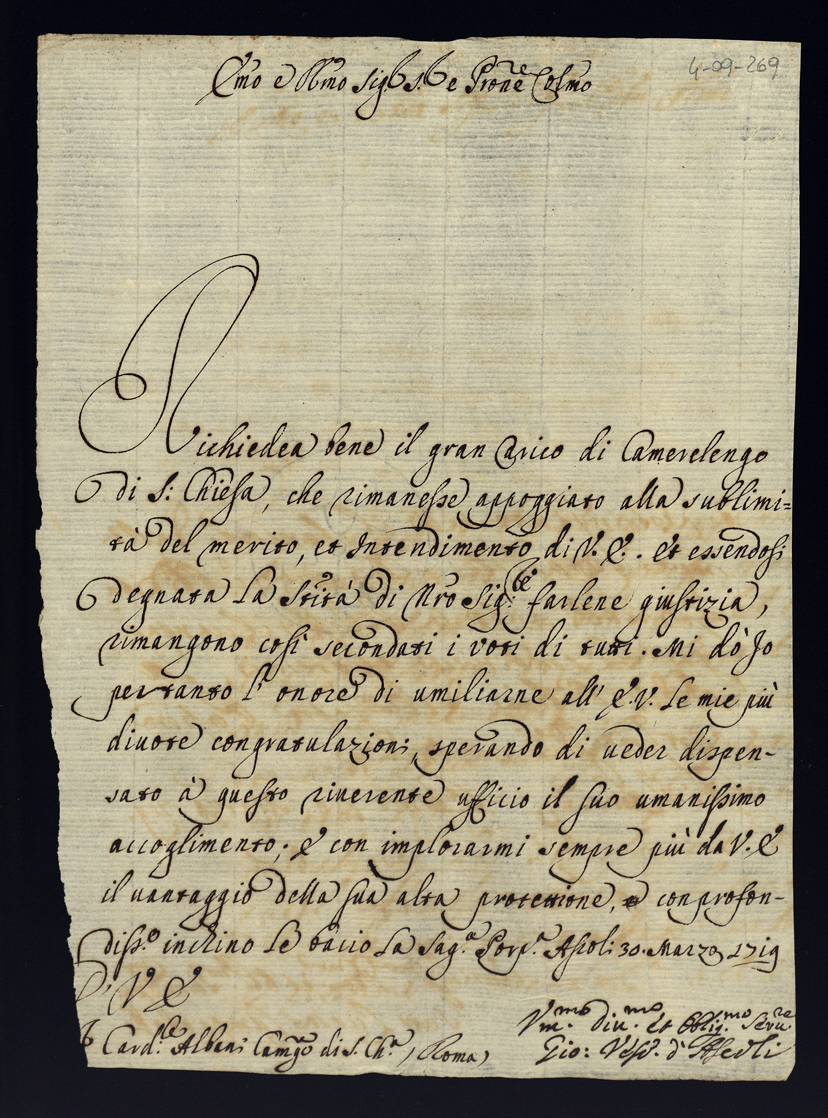 Emo e Rmo Sig.r S.r e Prone Colmo
4-09-269
Richiedea bene il gran Carico di Camerelengo
di S: Chiesa, che rimanesse appoggiato alla sublimi=
tà del merito, et Intendimento di V. E. Et essendosi
degnata La Stità di Nro Sig.re farlene giustizia,
rimangono così secondati i voti di tutti. Mi dò Io
per tanto l'onore di umiliarne all' E.V. Le mie più
divote congratulazioni, sperando di veder dispen-
sato à questo riverente ufficio il suo umanissimo
accoglimento; E con implorarmi sempre più da V. E
il vantaggio della sua alta protettione, e con profon-
diss.o inchino Le bacio La Sag.a Porp.a Ascoli 30. Marzo 1719
D' V E
Card.le Albani Camgo di S. Ch.a (Roma)
Vm.mo Diu.mo Et Oblig.mo Seru.re
Gio: Vesc.o d'Ascoli